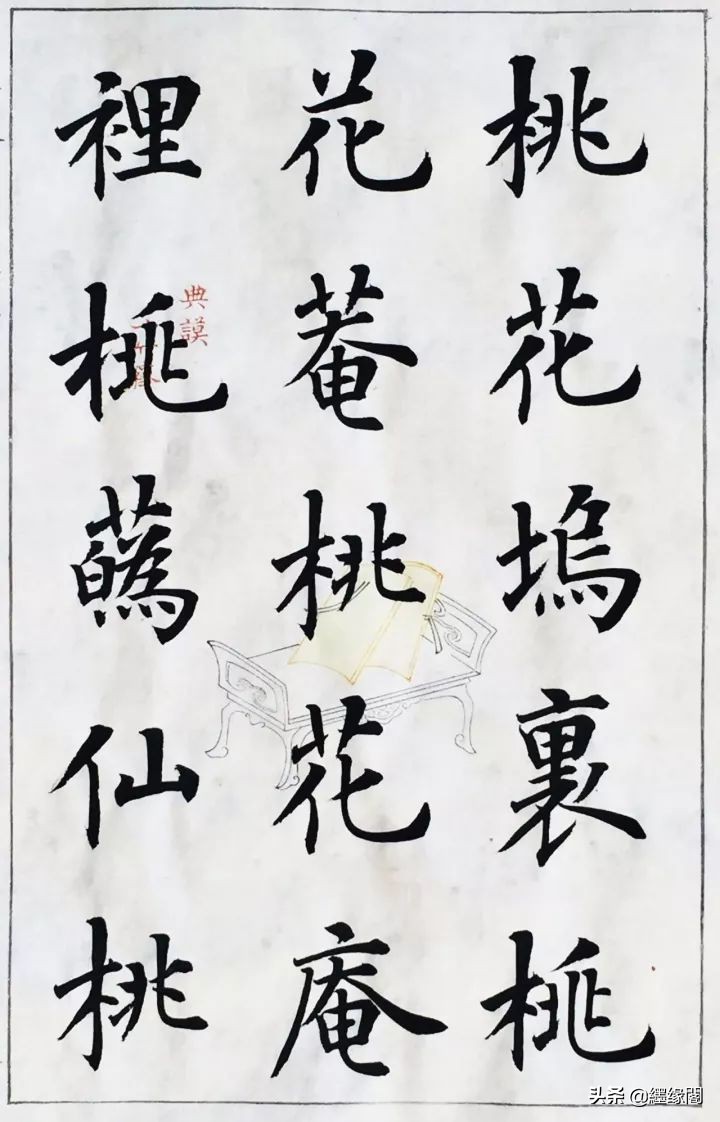 桃花塢裏桃
花菴桃花庵
裡桃蘤仙桃
典謨
头条 @纆缘阁